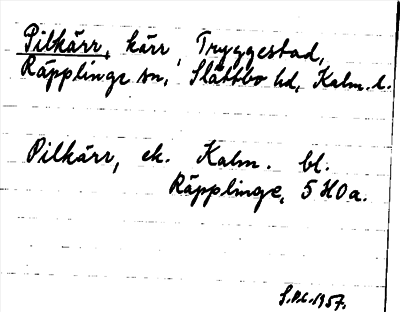 Pilkärr, kärr, Tryggestad,
Räpplinge sn, Slättbo hd, Kalm. l.
Pilkärr, ek. Kalm. bl.
Räpplinge, 5 H 0 a.
1957.